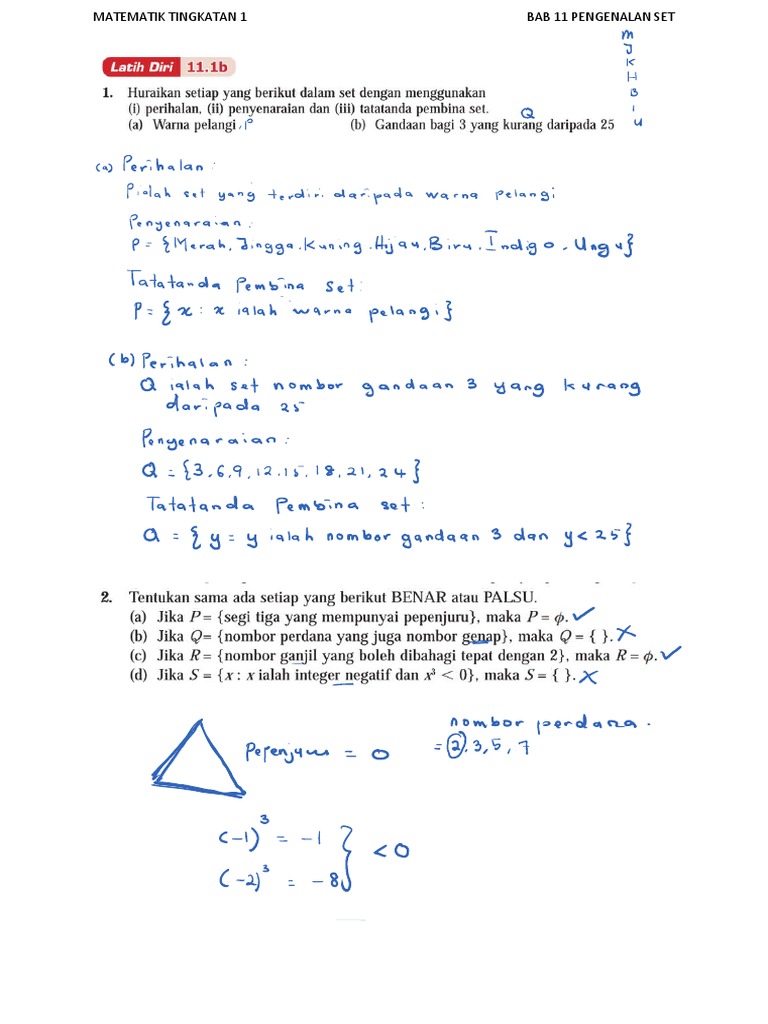 MATEMATIK TINGKATAN 1 BAB 11 PENGENALAN SET
M
J
K
H
B
I
U
Latih Diri 11.1b
1. Huraikan setiap yang berikut dalam set dengan menggunakan
(i) perihalan, (ii) penyenaraian dan (iii) tatatanda pembina set.
(a) Warna pelangi, P (b) Gandaan bagi 3 yang kurang daripada 25 Q
(a) Perihalan:
P ialah set yang terdiri daripada warna pelangi
Penyenaraian:
P = {Merah, Jingga, Kuning, Hijau, Biru, Indigo, Ungu}
Tatatanda Pembina Set:
P = {x : x ialah warna pelangi}
(b) Perihalan:
Q ialah set nombor gandaan 3 yang kurang
daripada 25
Penyenaraian:
Q = {3, 6, 9, 12, 15, 18, 21, 24}
Tatatanda Pembina set:
Q = {y = y ialah nombor gandaan 3 dan y < 25}
2. Tentukan sama ada setiap yang berikut BENAR atau PALSU.
(a) Jika P = {segi tiga yang mempunyai pepenjuru}, maka P = ϕ. ✓
(b) Jika Q = {nombor perdana yang juga nombor genap}, maka Q = { }. ✗
(c) Jika R = {nombor ganjil yang boleh dibahagi tepat dengan 2}, maka R = ϕ. ✓
(d) Jika S = {x : x ialah integer negatif dan x³ < 0}, maka S = { }. ✗
nombor perdana.
Pepenjuru = 0 = 2, 3, 5, 7
(-1)³ = -1
< 0
(-2)³ = -8